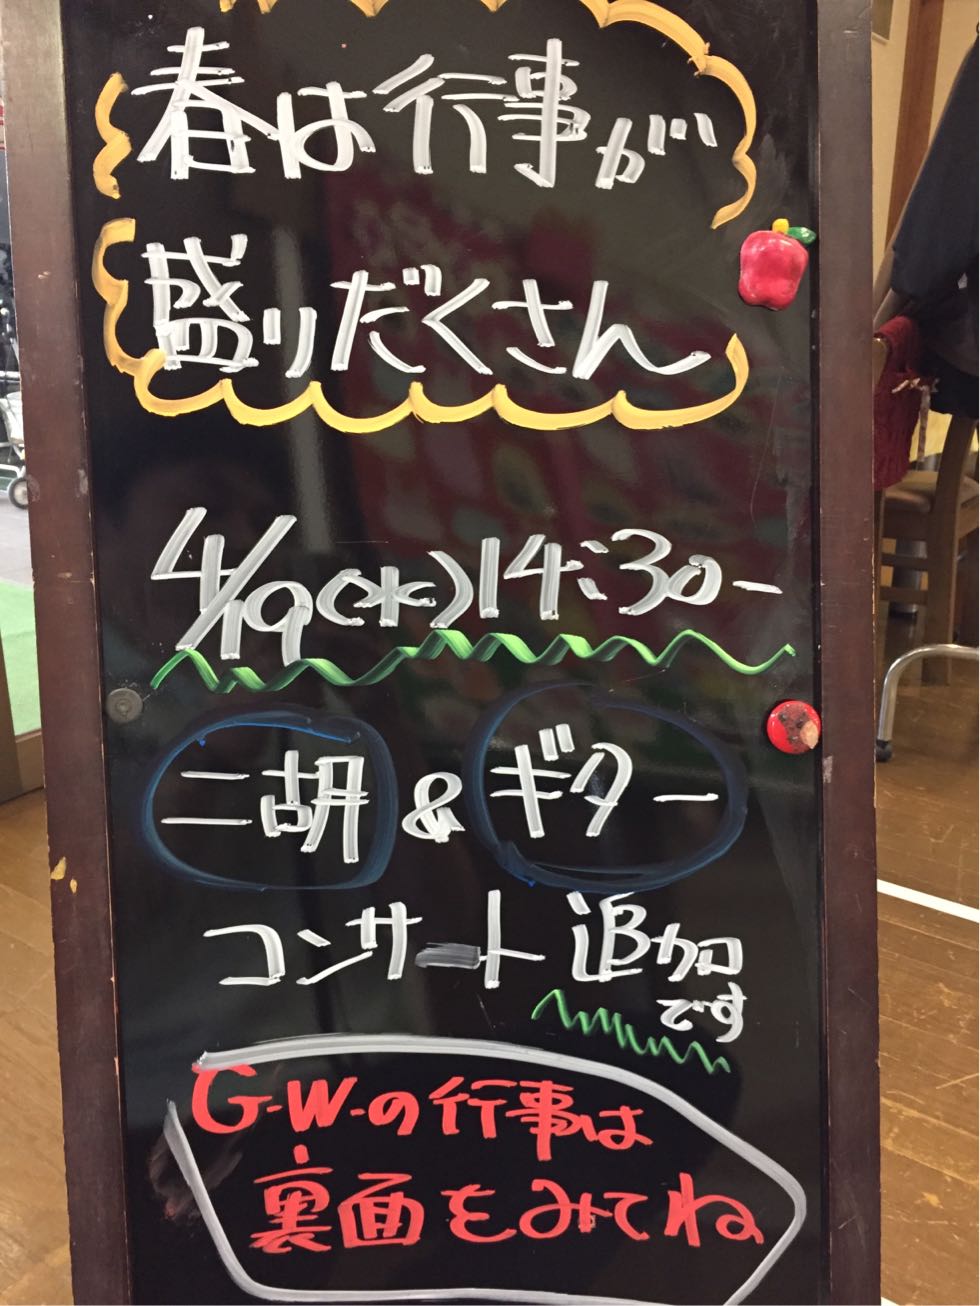 春は行事が
盛りだくさん
4/19(水)14:30-
二胡&ギター
コンサート追加
です
G-W-の行事は
裏面をみてね